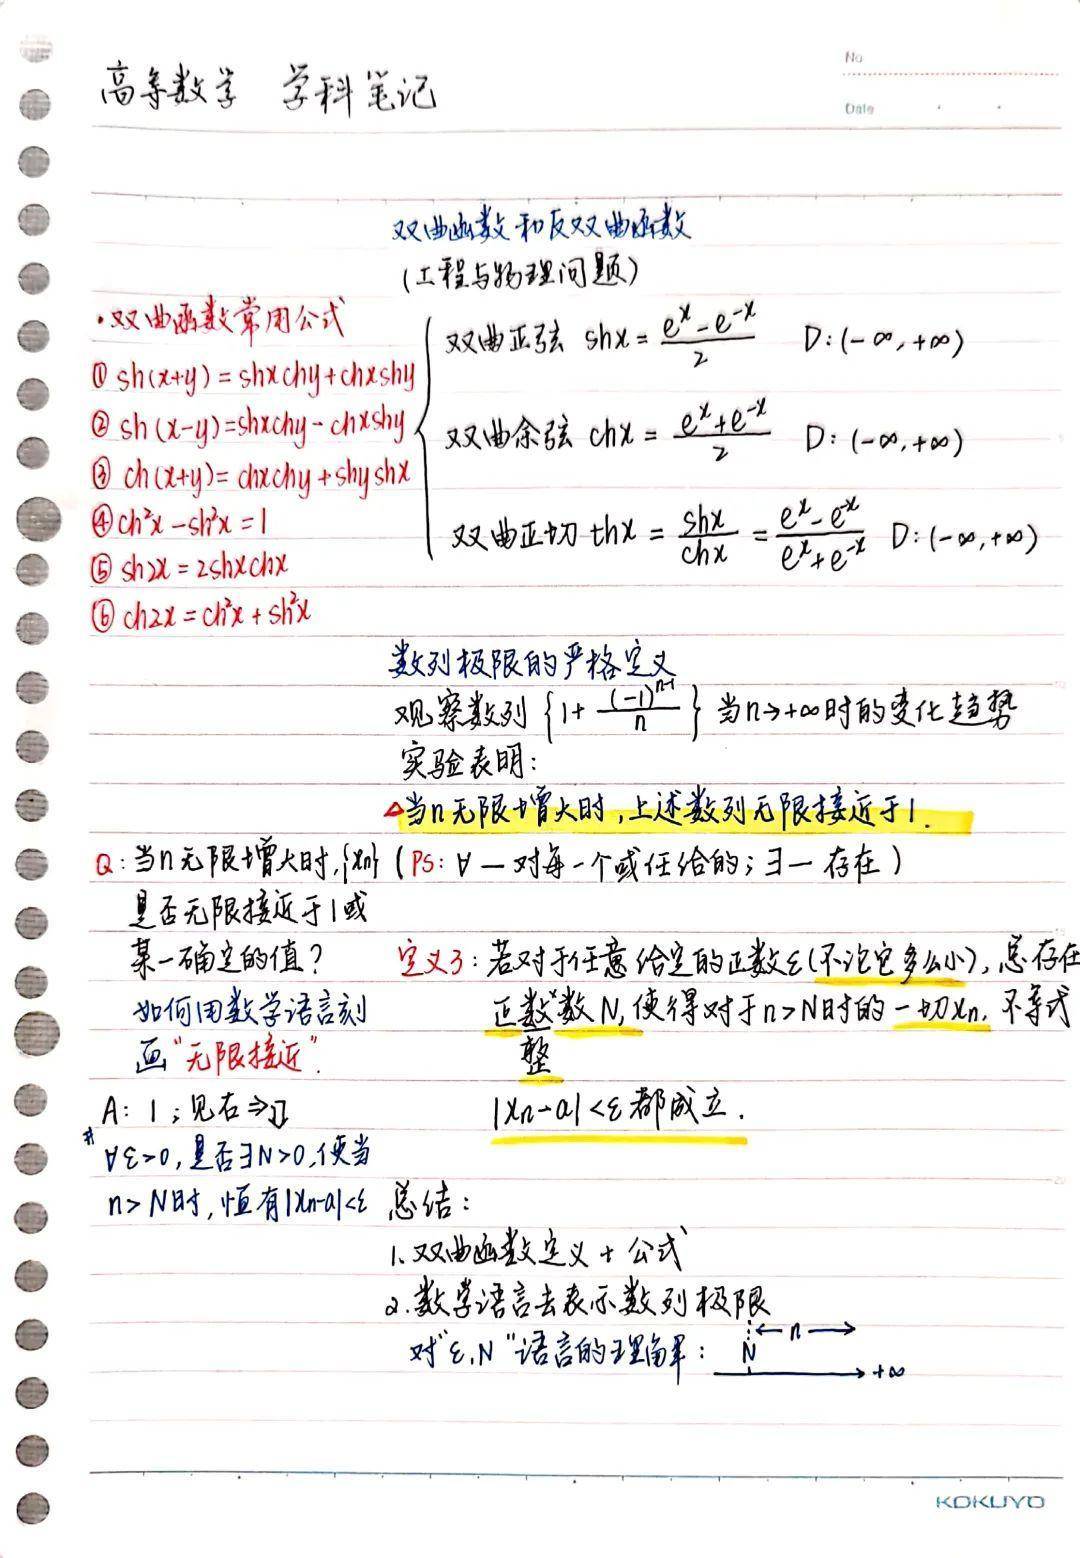 No
高等数学 学科笔记
Date
双曲函数和反双曲函数
(工程与物理问题)
·双曲函数常用公式
① sh(x+y)=shxchy+chxshy
② sh(x-y)=shxchy-chxshy
③ ch(x+y)=chxchy+shyshx
④ ch²x-sh²x=1
⑤ sh2x=2shxchx
⑥ ch2x=ch²x+sh²x
双曲正弦 shx = (e^x - e^-x)/2 D:(-∞,+∞)
双曲余弦 chx = (e^x+e^-x)/2 D:(-∞,+∞)
双曲正切 thx = shx/chx = (e^x - e^-x)/(e^x+e^-x) D:(-∞,+∞)
数列极限的严格定义
观察数列 {1+ (-1)^(n-1)/n} 当n→+∞时的变化趋势
实验表明:
△当n无限增大时,上述数列无限接近于1.
(PS: ∀ — 对每一个或任给的; ∃ — 存在)
Q:当n无限增大时,{xn}
是否无限接近于1或
某一确定的值?
如何用数学语言刻
画"无限接近".
A: 1;见右⇒
# ∀ε>0,是否∃N>0,使当
n>N时,恒有|xn-a|<ε
定义3:若对于任意给定的正数ε(不论它多么小),总存在
正数数N,使得对于n>N时的一切xn,不等式
整
|xn-a|<ε都成立.
总结:
1.双曲函数定义+公式
2.数学语言去表示数列极限
对"ε,N"语言的理解: N ←n→ +∞
KOKUYO